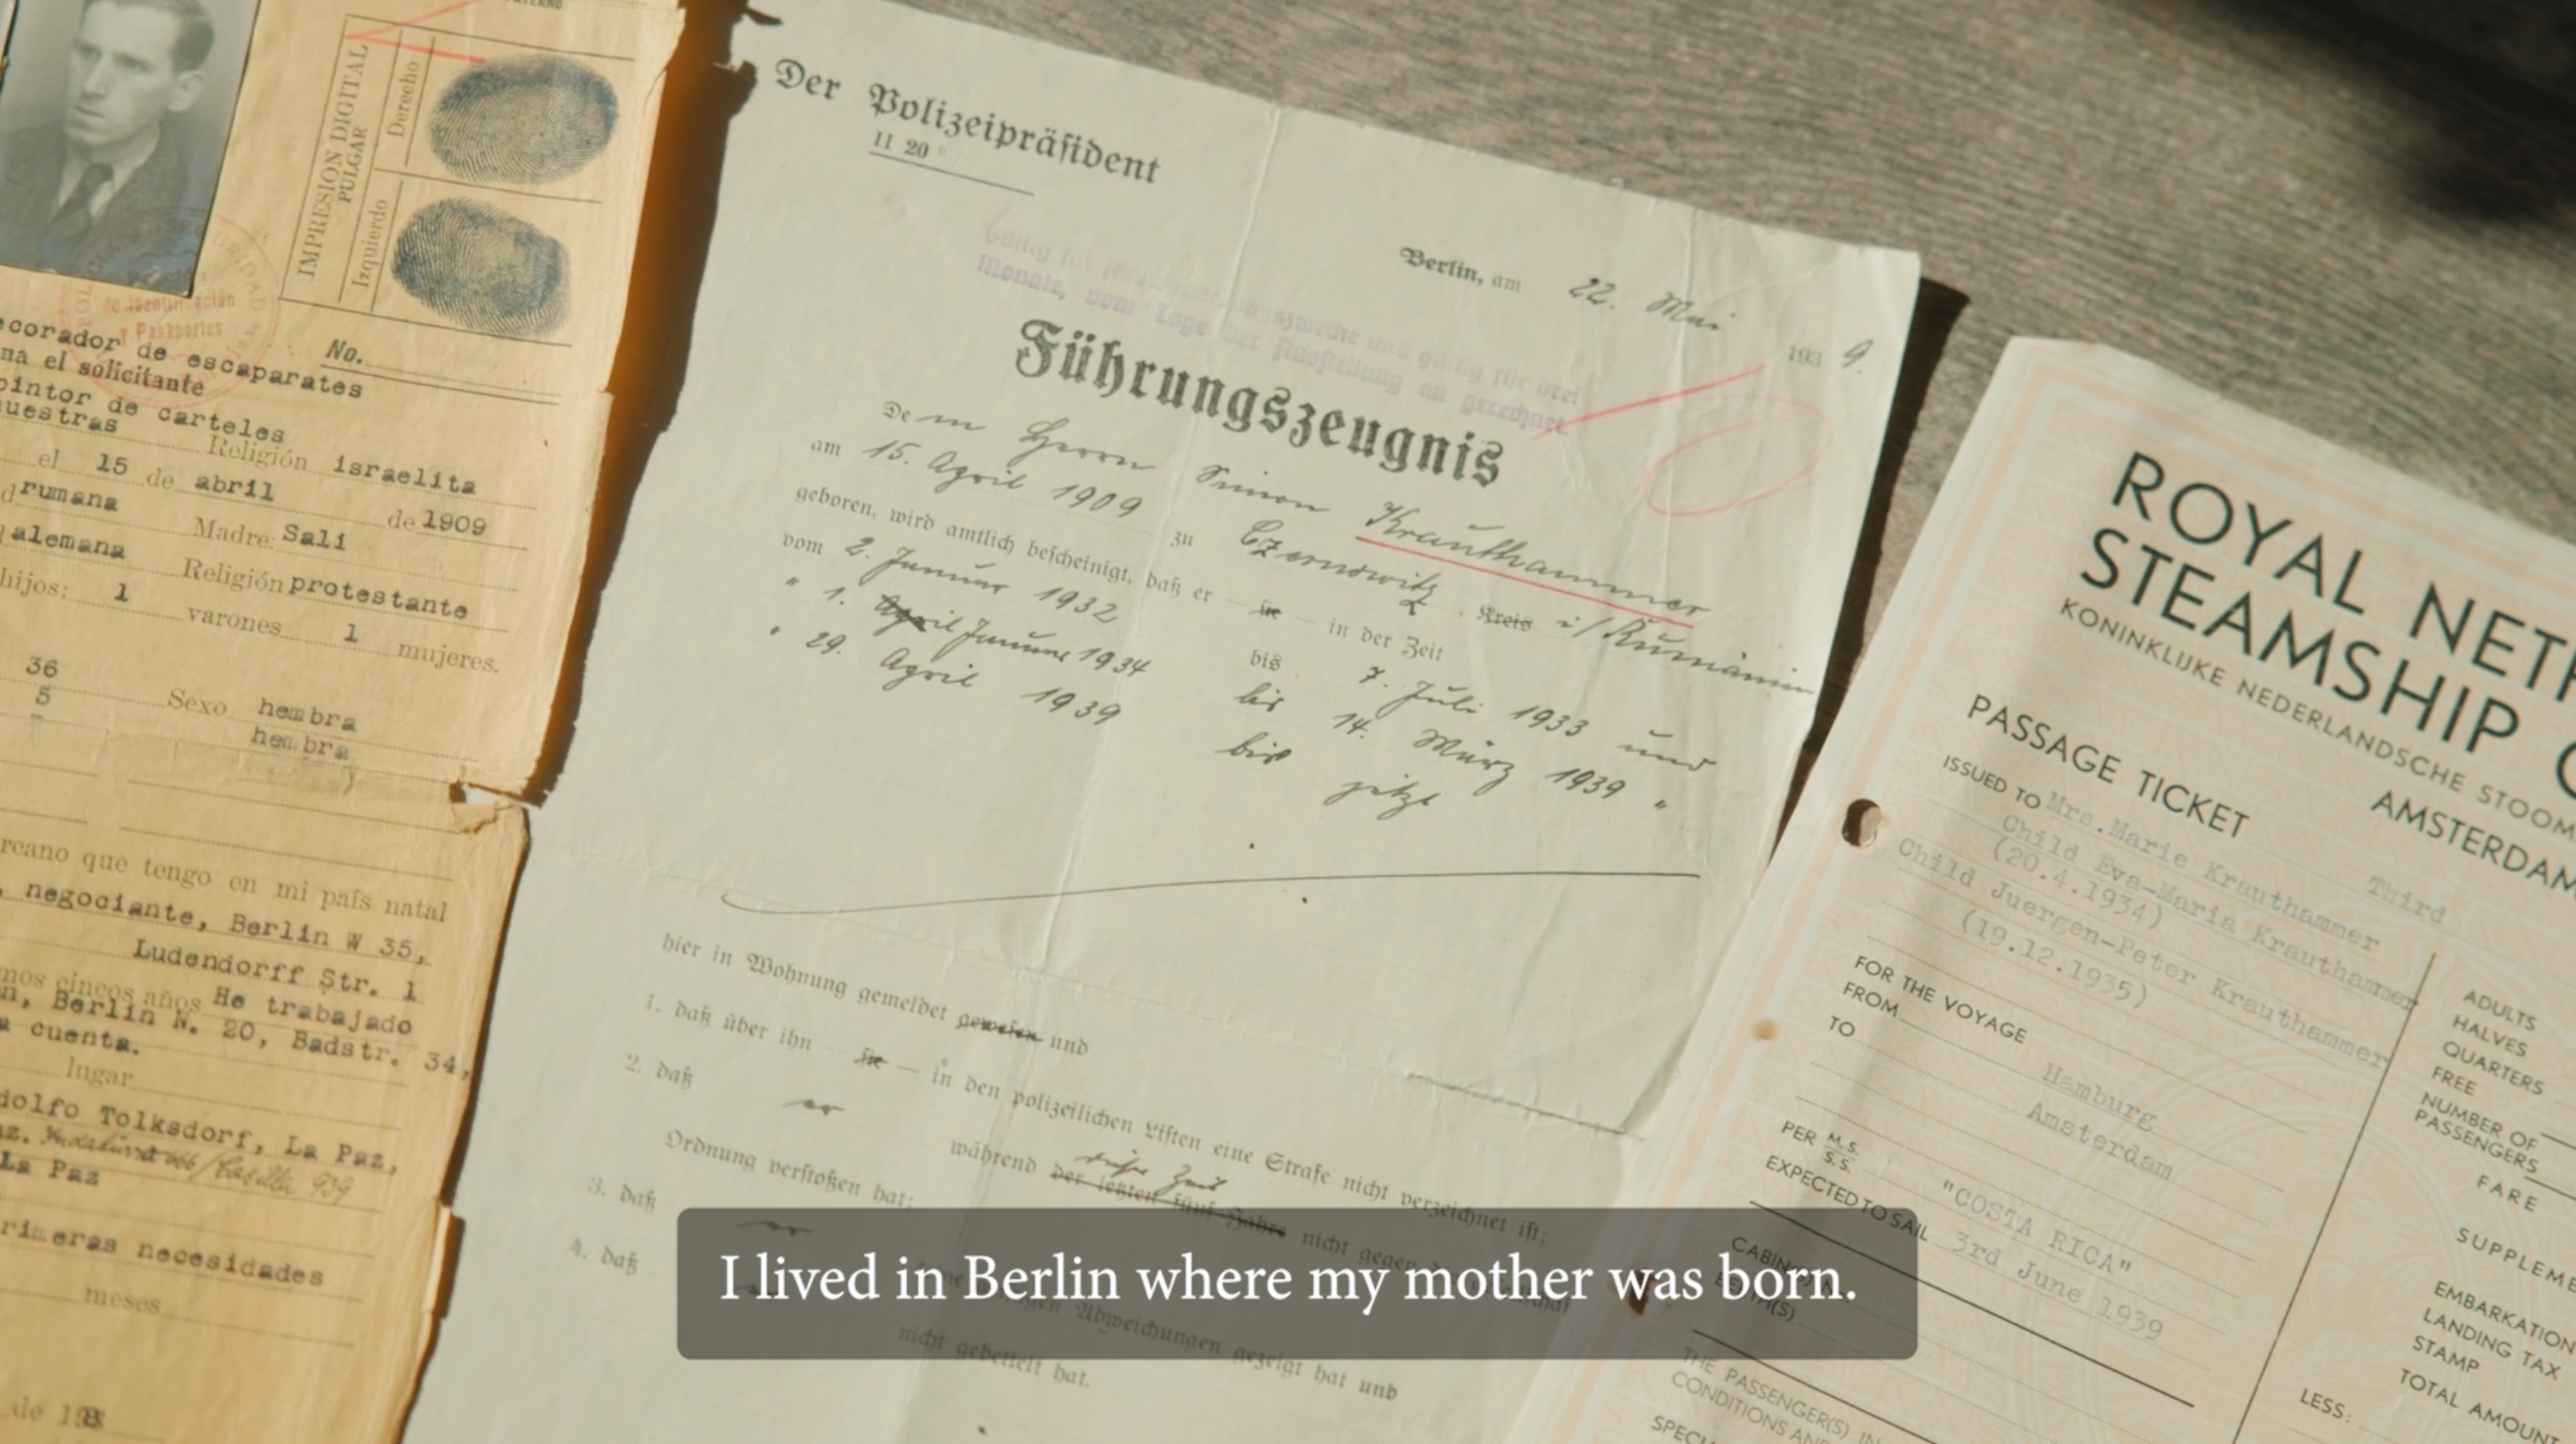 IMPRESION DIGITAL
PULGAR
Derecho
Izquierdo
de Identificación
y Pasaportes
No.
corador de escaparates
na el solicitante
pintor de carteles
uestras
Religión israelita
el 15 de abril de 1909
rumana Madre: Sali
alemana Religión protestante
hijos: 1 varones 1 mujeres.
36 Sexo hembra
5 hembra
rcano que tengo en mi país natal
, negociante, Berlin W 35,
Ludendorff Str. 1
mos cincos años He trabajado
n, Berlin N. 20, Badstr. 34,
a cuenta.
lugar
dolfo Tolksdorf, La Paz,
az. 939
La Paz
rimeras necesidades
meses
de 193
Der Polizeipräsident
II 20
Berlin, am 22. Mai 1939.
Monate, vom Tage der Ausstellung an gerechnet.
Führungszeugnis
Dem Herrn Simon Krauthammer
am 15. April 1909 zu Czernowitz, Kreis i/Rumänien
geboren, wird amtlich bescheinigt, daß er — sie — in der Zeit
vom 2. Januar 1932 bis 7. Juli 1933 und
" 1. April Januar 1934 bis 14. März 1939 "
" 29. April 1939 bis jetzt
hier in Wohnung gemeldet gewesen und
1. daß über ihn — sie — in den polizeilichen Listen eine Strafe nicht verzeichnet ist;
2. daß er während der letzten fünf Jahre dieser Zeit nicht gegen
Ordnung verstoßen hat;
3. daß er
4. daß
Abweichungen gezeigt hat und
nicht gebettelt hat.
ROYAL NETH
STEAMSHIP C
KONINKLIJKE NEDERLANDSCHE STOOM
AMSTERDAM
PASSAGE TICKET
Third
ISSUED TO Mrs. Marie Krauthammer
Child Eva-Maria Krauthammer
(20.4.1934)
Child Juergen-Peter Krauthammer
(19.12.1935)
FOR THE VOYAGE
FROM Hamburg
TO Amsterdam
PER M.S. S.S. "COSTA RICA"
EXPECTED TO SAIL 3rd June 1939
CABIN
BERTH(S)
THE PASSENGER(S) IN
CONDITIONS AN
SPECI
ADULTS
HALVES
QUARTERS
FREE
NUMBER OF
PASSENGERS
FARE
SUPPLEME
EMBARKATION
LANDING TAX
STAMP
TOTAL AMOUNT
LESS:
I lived in Berlin where my mother was born.